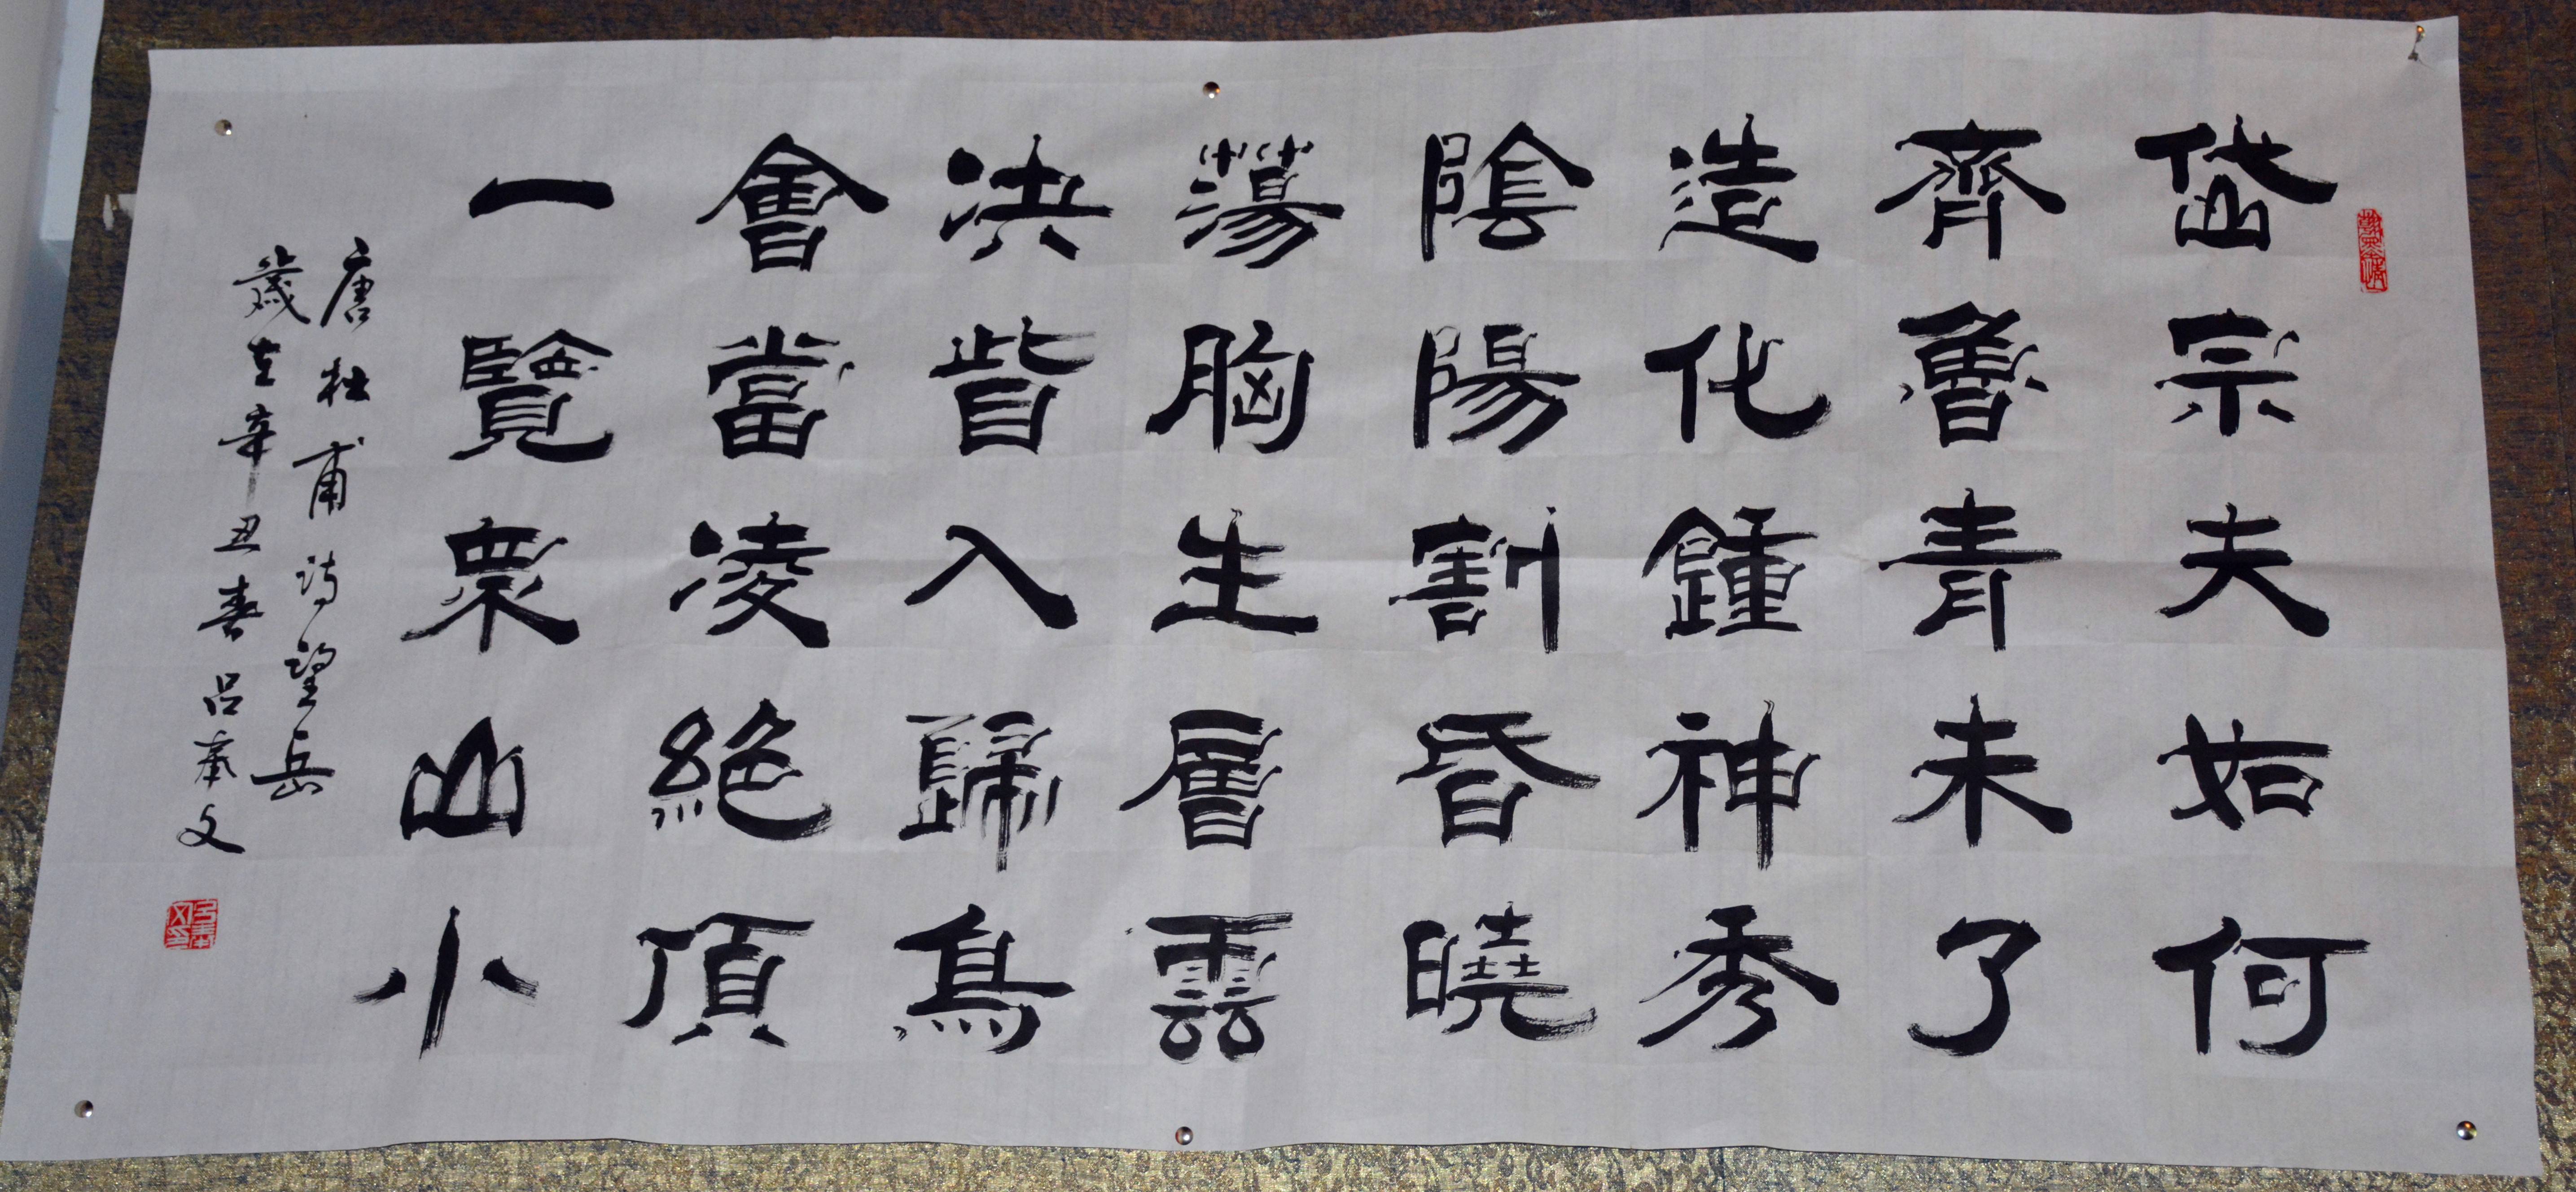 岱宗夫如何
齊魯青未了
造化鍾神秀
陰陽割昏曉
蕩胸生層雲
決眥入歸鳥
會當凌絕頂
一覽衆山小
唐杜甫詩望岳
歲在辛丑春呂奉文